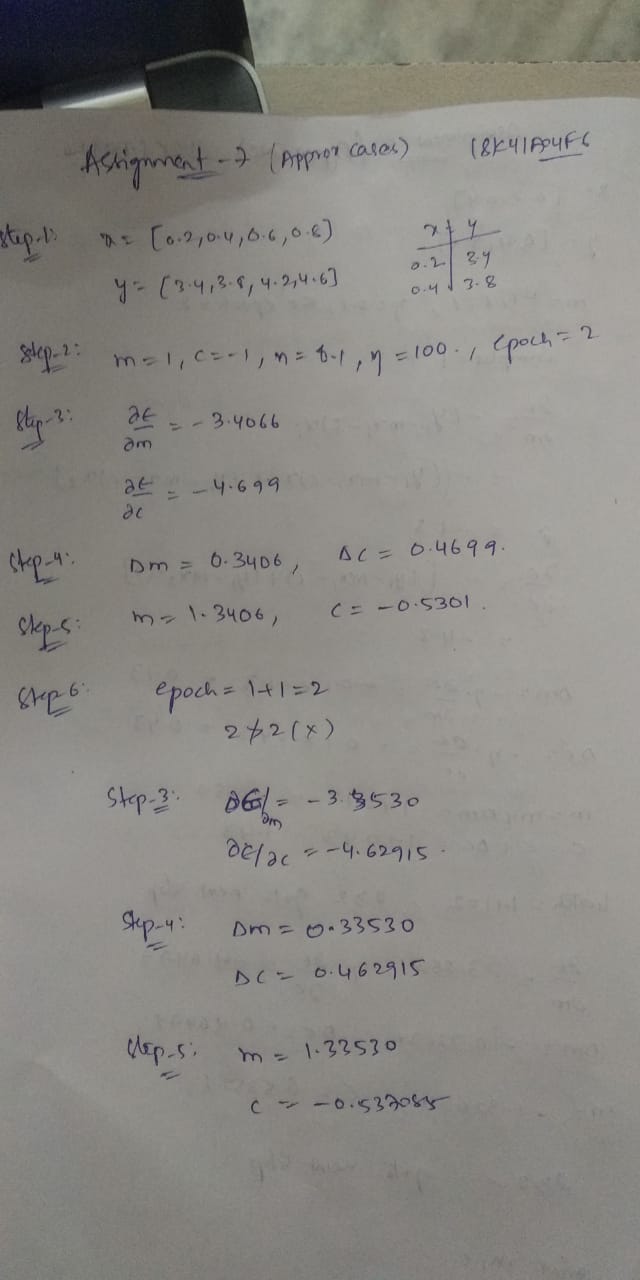 Assignment - 7 (Approx cases) 18K41A04F6
Step-1: x = [0.2,0.4,0.6,0.8]
y = [3.4,3.8,4.2,4.6]
x y
0.2 3.4
0.4 3.8
Step-2: m = 1, c = -1, η = 0.1, η = 100., epoch = 2
Step-3: ∂E/∂m = -3.4066
∂E/∂c = -4.699
Step-4: Δm = 0.3406, Δc = 0.4699.
Step-5: m = 1.3406, c = -0.5301.
Step 6: epoch = 1+1 = 2
2 ≯ 2 (x)
Step-3: ∂E/∂m = -3.3530
∂E/∂c = -4.62915.
Step-4: Δm = 0.33530
Δc = 0.462915
Step-5: m = 1.33530
c = -0.537085